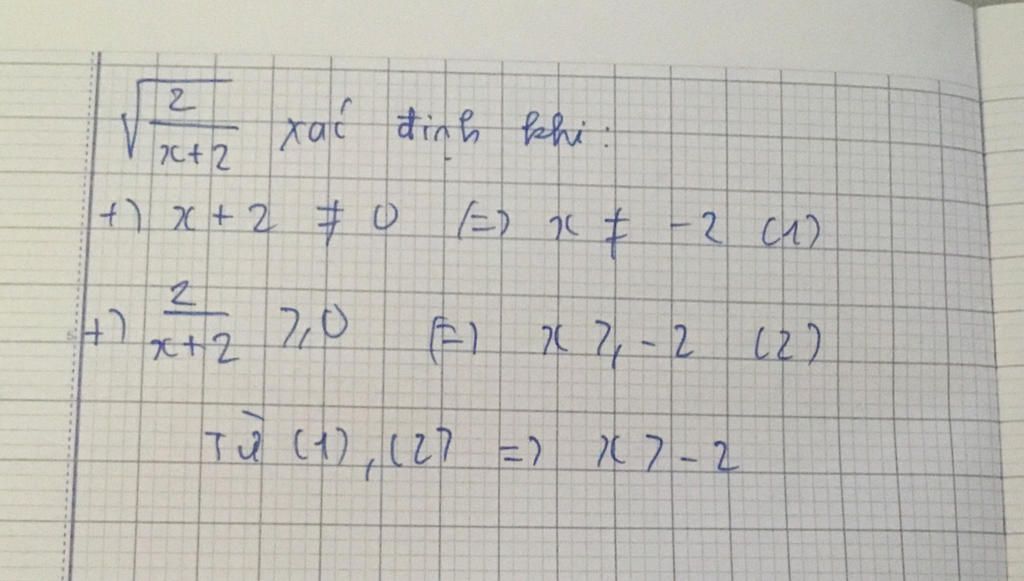 √(2/(x+2)) xác định khi:
+) x + 2 ≠ 0 (=) x ≠ -2 (1)
+) 2/(x+2) ≥ 0 (=) x ≥ -2 (2)
Từ (1), (2) => x > -2